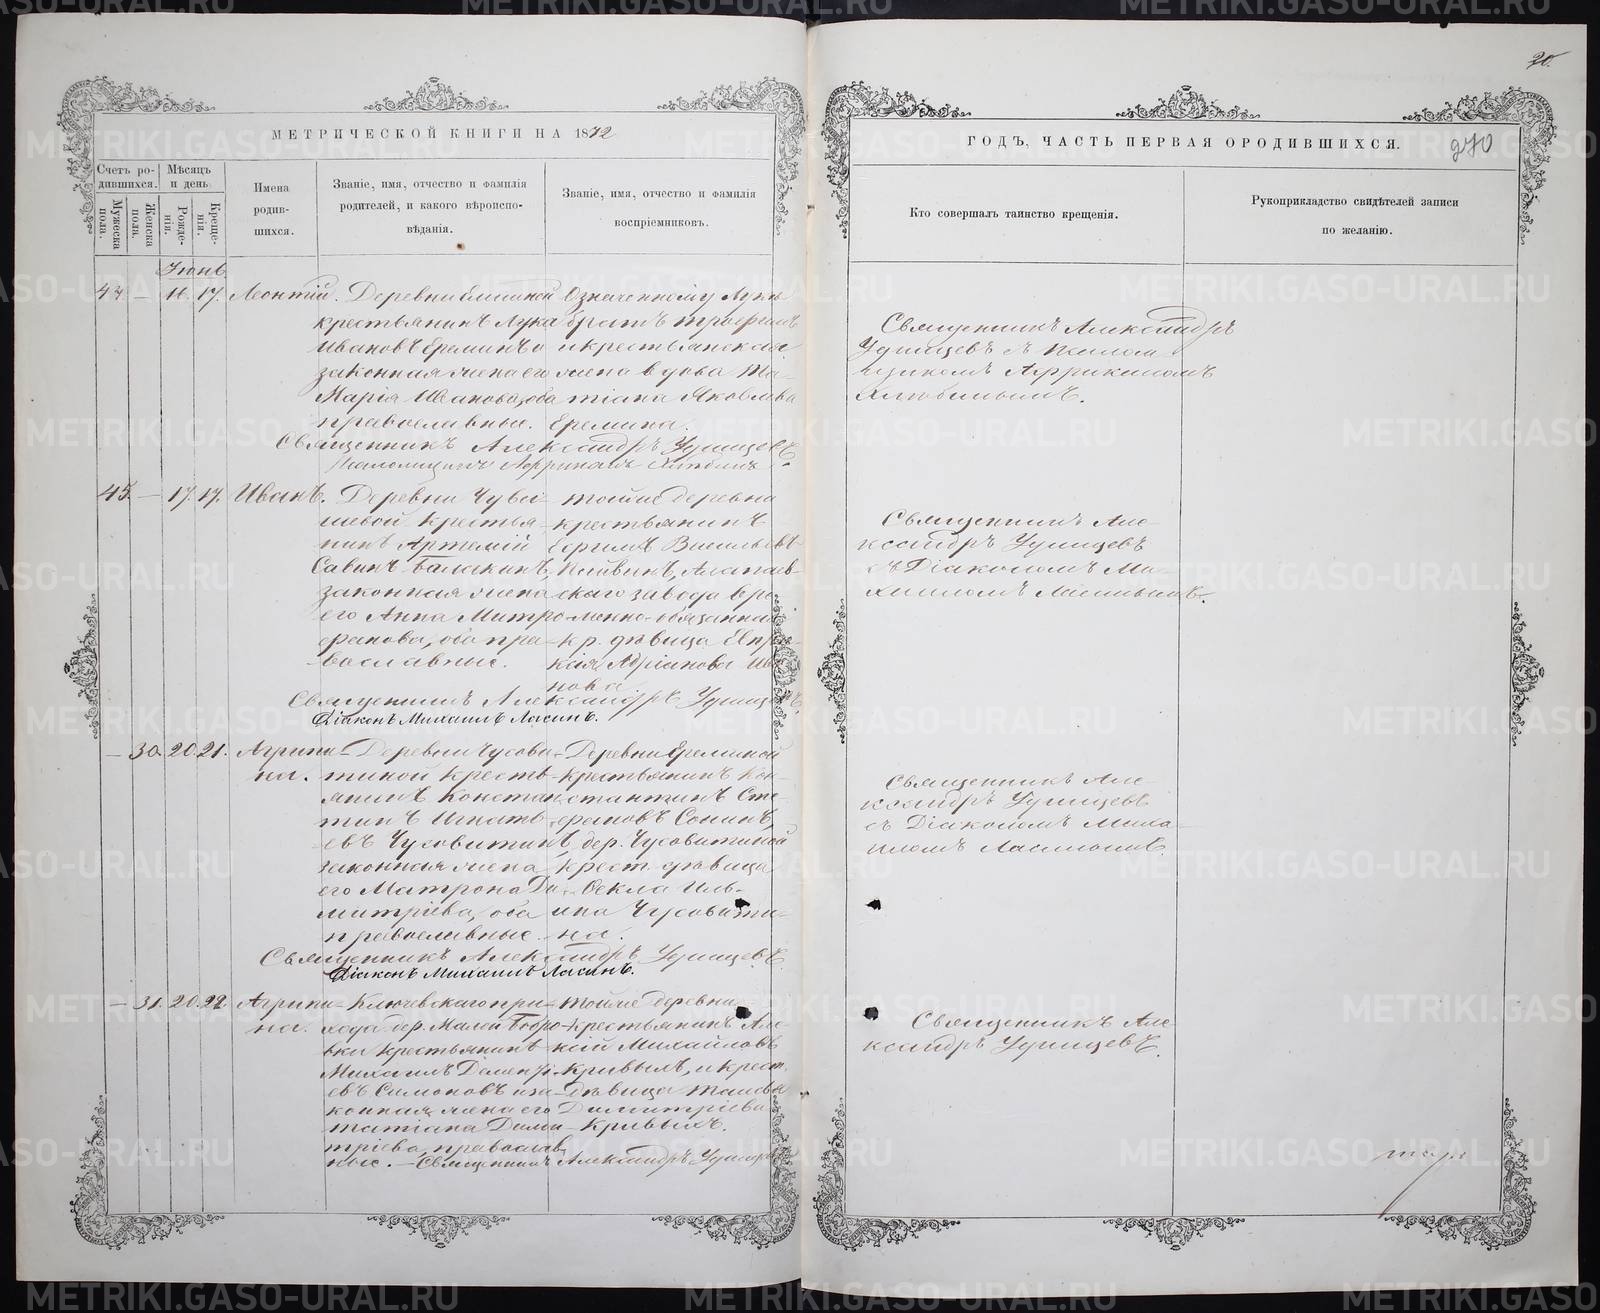 МЕТРИЧЕСКОЙ КНИГИ НА 1872
Счетъ ро-
дившихся.
Мѣсяцъ
и день
Мужеска
пола.
Женска
пола.
Рожде-
нія.
Креще-
нія.
Имена
родив-
шихся.
Званіе, имя, отчество и фамилія
родителей, и какого вѣроиспо-
вѣданія.
Званіе, имя, отчество и фамилія
воспріемниковъ.
Іюнь
44 — 16. 17. Леонтій.
Деревни
крестьянинъ Лука
Ивановъ Ереминъ и
законная жена его
Марія Иванова, оба
православные.
Означенному Луке
братъ Трофимъ
и крестьянская
жена вдова Та-
тіана Яковлева
Еремина.
Священникъ Александръ Удинцевъ.
Псаломщикъ Африканъ Хлюбинъ
45. — 17. 17. Иванъ.
Деревни
шевой крестья-
нинъ Артемій
Савинъ Балакинъ,
законная жена
его Анна Митро-
фанова, оба пра-
вославные.
тойже деревни
крестьянинъ
Ефимъ Васильевъ
Алапаев-
скаго завода вре-
менно-обязанная
кр. дѣвица Евпра-
ксія Адріанова Ива-
нова
Священникъ Александръ Удинцевъ.
Діаконъ Михаилъ Ласинъ.
— 30. 20. 21. Агрипи-
на.
Деревни Чусови-
тиной кресть-
янинъ Констан-
тинъ Игнать-
евъ Чусовитинъ,
законная жена
его Матрона Ди-
митріева, оба
православные.
Деревни Ереминой
крестьянинъ Кон-
стантинъ Сте-
фановъ Сонинъ,
дер. Чусовитиной
крест. дѣвица
Ѳекла Иль-
ина Чусовити-
на.
Священникъ Александръ Удинцевъ.
Діаконъ Михаилъ Ласинъ.
— 31. 20. 22. Агрипи-
на.
Ключевскаго при-
хода дер. Малой Бобро-
вки крестьянинъ
Михаилъ Дементі-
евъ Симоновъ и за-
конная жена его
Татіана Дими-
тріева, православ-
ные. —
тойже деревни
крестьянинъ Але-
ксій Михайловъ
Кривыхъ, и крест.
дѣвица
Димитріева
Кривыхъ.
Священникъ Александръ Удинцевъ
20.
ГОДЪ, ЧАСТЬ ПЕРВАЯ О РОДИВШИХСЯ.
270
Кто совершалъ таинство крещенія.
Рукоприкладство свидѣтелей записи
по желанію.
Священникъ Александръ
Удинцевъ съ Псалом-
щикомъ Африканомъ
Хлюбинымъ.
Священникъ Але-
ксандръ Удинцевъ
съ Діакономъ Ми-
хаиломъ Ласинымъ.
Священникъ Але-
ксандръ Удинцевъ
съ Діакономъ Миха-
иломъ Ласинымъ.
Священникъ Але-
ксандръ Удинцевъ.
METRIKI.GASO-URAL.RU